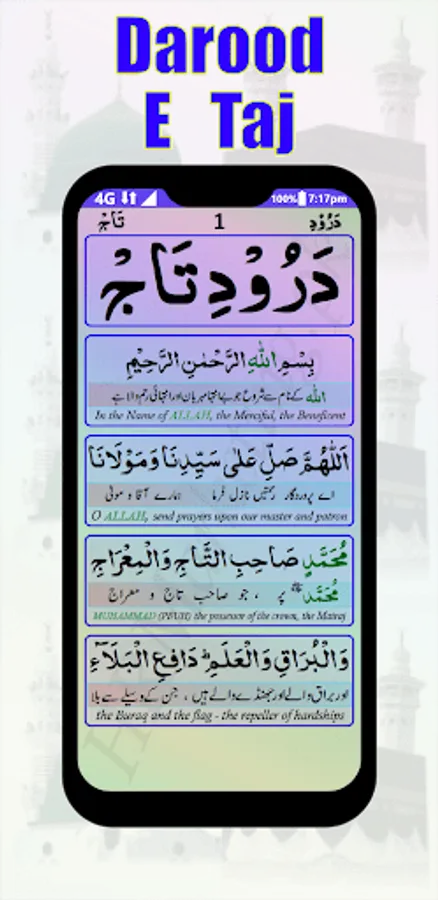 Darood
E Taj
4G 100% 7:17pm
دَرُوْدِ 1 تَاجْ
دَرُوْدِ تَاجْ
بِسْمِ اللّٰهِ الرَّحْمٰنِ الرَّحِيْمِ
اللہ کے نام سے شروع جو بے انتہا مہربان اور انتہائی رحم والا ہے
In the Name of ALLAH, the Merciful, the Beneficent
اَللّٰهُمَّ صَلِّ عَلٰى سَيِّدِنَا وَمَوْلَانَا
اے پروردگار رحمتیں نازل فرما ہمارے آقا و مولٰی
O ALLAH, send prayers upon our master and patron
مُحَمَّدٍ صَاحِبِ التَّاجِ وَالْمِعْرَاجِ
مُحَمَّد ﷺ پر ، جو صاحب تاج و معراج
MUHAMMAD (PBUH) the possessor of the crown, the Mairaj
وَالْبُرَاقِ وَالْعَلَمِ ؕ دَافِعِ الْبَلَآءِ
اور براق والے اور جھنڈے والے ہیں ، جن کے وسیلے سے بلا
the Buraq and the flag - the repeller of hardships